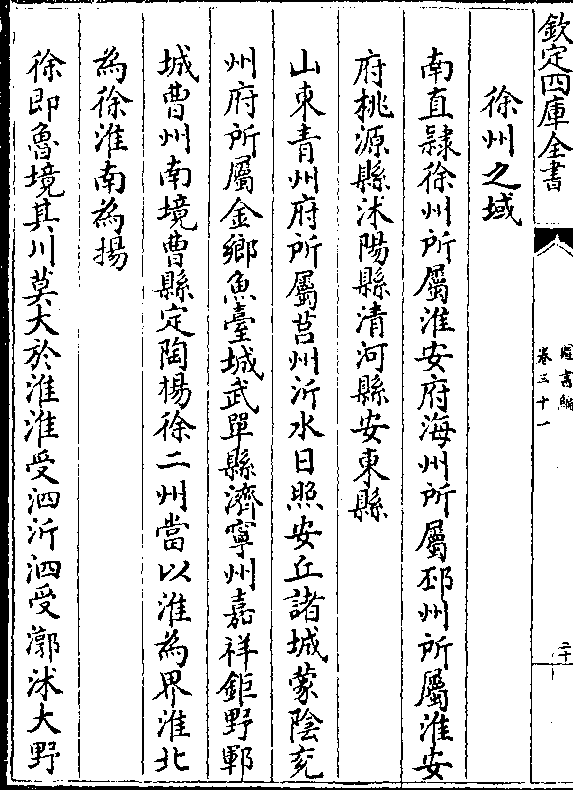 欽定四庫全書
圖書編
卷三十一
二十
徐州之域
南直隷徐州所屬淮安府海州所屬邳州所屬淮安
府桃源縣沭陽縣清河縣安東縣
山東青州府所屬莒州沂水日照安丘諸城蒙陰兖
州府所屬金鄉魚臺城武單縣濟寧州嘉祥鉅野鄆
城曹州南境曹縣定陶揚徐二州當以淮為界淮北
為徐淮南為揚
徐即魯境其川莫大於淮淮受泗沂泗受漷沭大野